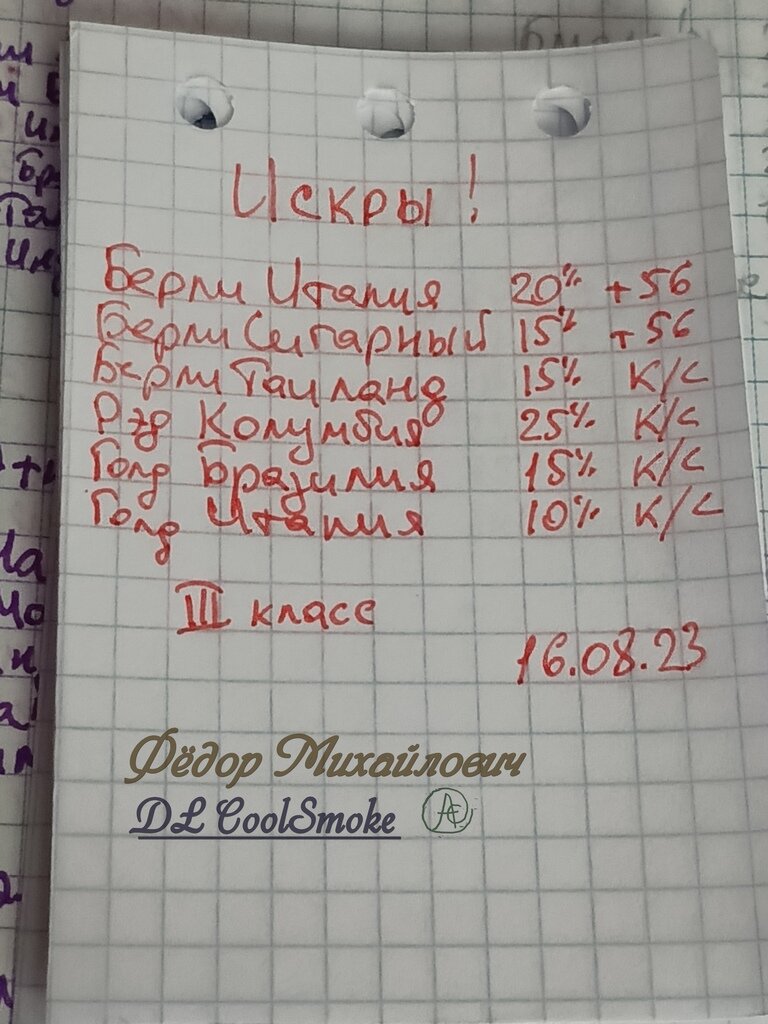 Искры!
Берли Италия 20% +5б
Берли Сигарный 15% +5б
Берли Таиланд 15% К/С
Рэд Колумбия 25% К/С
Голд Бразилия 15% К/С
Голд Италия 10% К/С
III класс
16.08.23
Фёдор Михайлович
DL CoolSmoke